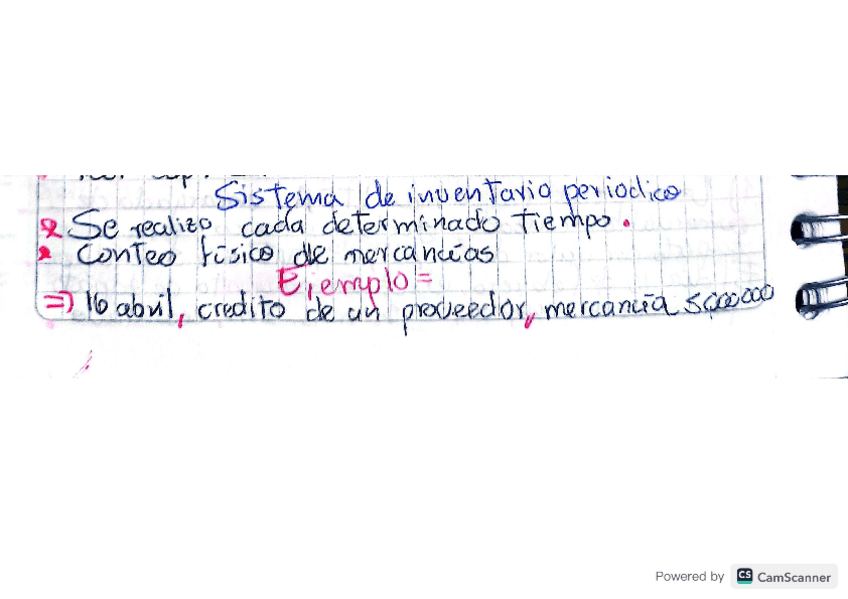 Sistema de inventario periodico
Se realizo cada determinado tiempo.
Conteo fisico de mercancias
Ejemplo =
=> 16 abril, credito de un proveedor, mercancia 5,000000
Powered by CS CamScanner